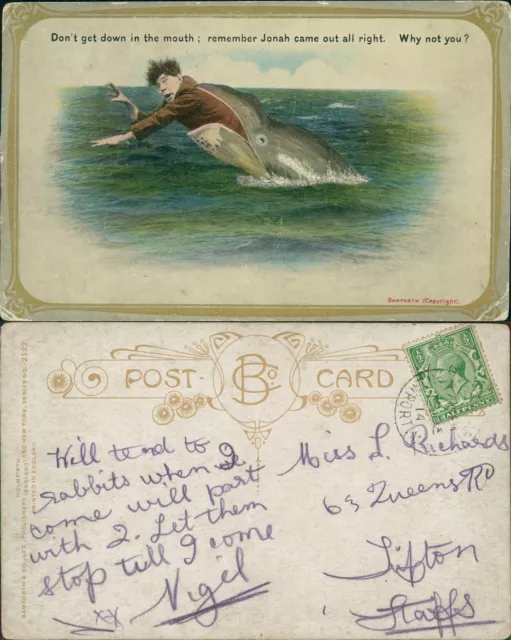 Don't get down in the mouth; remember Jonah came out all right. Why not you?
BAMFORTH (Copyright).
POST CARD
B & Co
BAMFORTH & CO. LTD., PUBLISHERS (ENGLAND) AND NEW YORK. SERIES NO. 2102
HOLMFIRTH
PRINTED IN ENGLAND
Will tend to
rabbits when I
come will part
with 2. Let them
stop till I come
Nigel
xx
Miss L Richards
63 Queens Rd
Tifton
Staffs